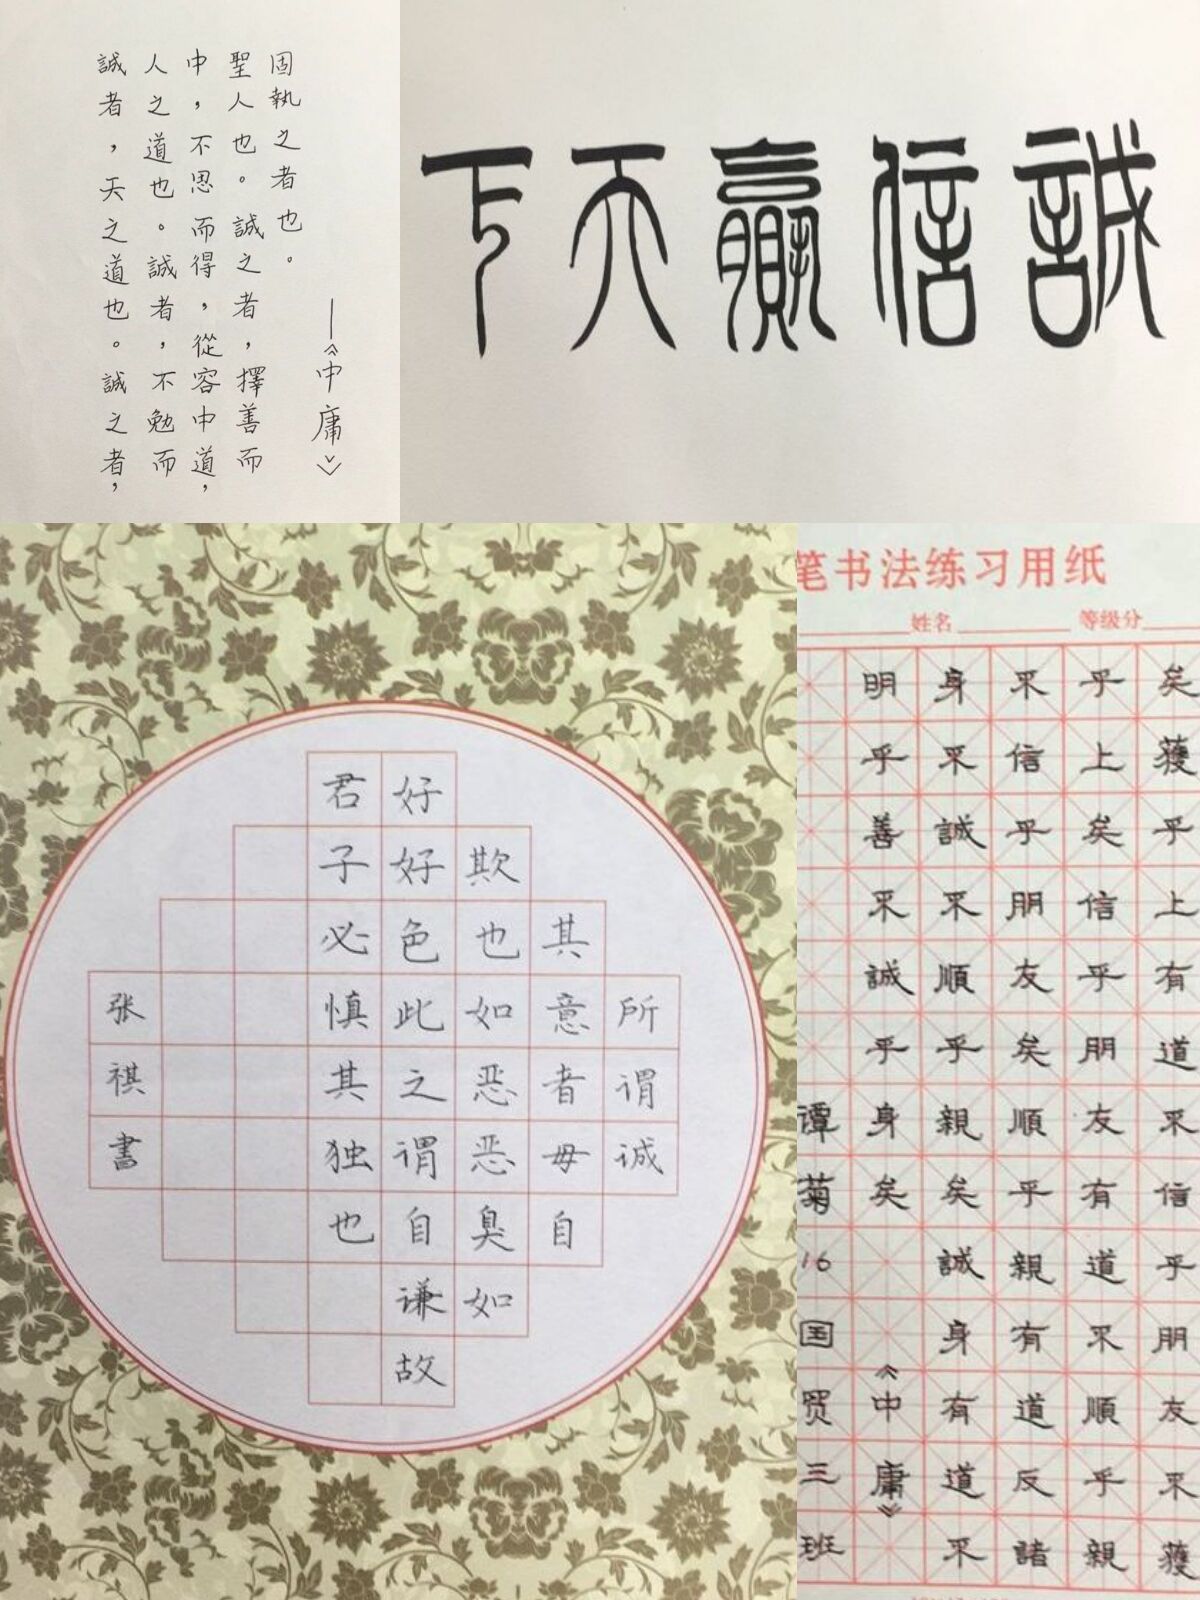 誠者，天之道也。誠之者，
人之道也。誠者，不勉而
中，不思而得，從容中道，
聖人也。誠之者，擇善而
固執之者也。
——《中庸》
誠信贏天下
所谓诚
其意者毋自
欺也如恶恶臭如
好好色此之谓自谦故
君子必慎其独也
张祺書
笔书法练习用纸
姓名 等级分
矣獲乎上有道不信乎朋友不獲
乎上矣信乎朋友有道不順乎親
不信乎朋友矣順乎親有道反諸
身不誠不順乎親矣誠身有道不
明乎善不誠乎身矣《中庸》
谭菊16国贸三班